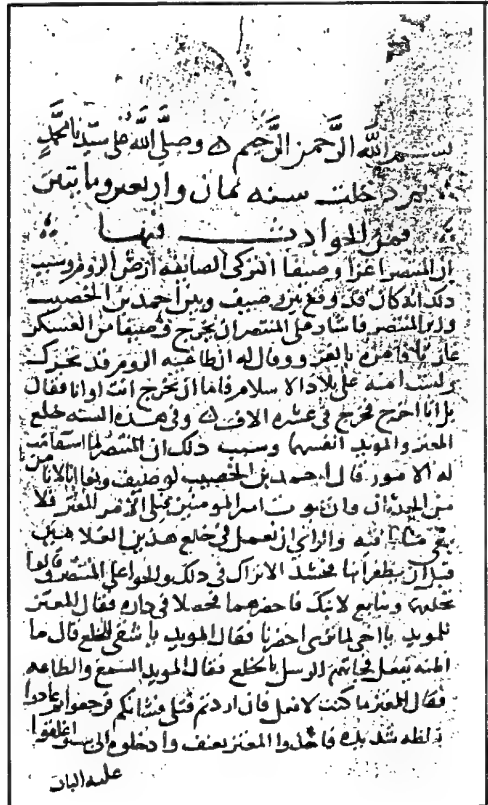 بسم الله الرحمن الرحيم وصلى الله على سيدنا محمد
ثم دخلت سنه ثمان واربعين وما يتين
فمن الحوادث فيها
ان المنتصر اغزا وصيفا التركى الصائفه ارض الروم وسبب
ذلك انه كان قد وقع بين وصيف وبين احمد بن الخصيب
وزير المنتصر فاشار على المنتصر ان يخرج وصيفا من العسكر
غازيا وامره بالغزو وقال له ان طاغيه الروم قد تحرك
ولست امنه على بلاد الاسلام فاما ان تخرج انت او انا فقال
بل انا اخرج فخرج فى عشره الاف وفى هذه السنه خلع
المعتز والمويد انفسهما وسبب ذلك ان المنتصر لما استقامت
له الامور قال احمد بن الخصيب لوصيف وبغا انا لا نامن
من الحدثان وان يموت امير المومنين فيلى الامر المعتز فلا
يبقى منا والراى ان نعمل فى خلع هذين الغلامين
قبل ان يظفرا بنا فجد الاتراك فى ذلك والحوا على المنتصر وقالوا
نخلعهما ونبايع لابنك فاحضرهما فجعلا فى داره فقال المعتز
للمويد يا اخى لم ترى احضرنا فقال المويد يا شقى للخلع قال ما
اظنه يفعل فجاتهم الرسل بالخلع فقال المويد السمع والطاعه
فقال المعتز ما كنت لافعل فان اردتم قتلى فشانكم فرجعوا ثم عادوا
بغلظه شديده فاخذوا المعتز بعنف وادخلوه الى بيت واغلقوا
عليه الباب